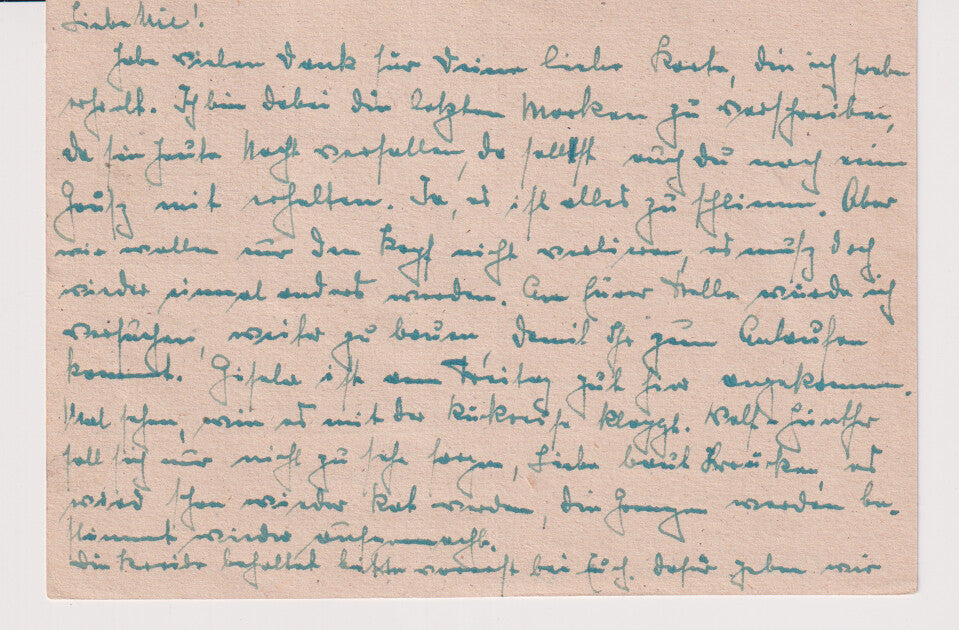 Liebe Mie!
Habe vielen Dank für Deine liebe Karte, die ich soeben
erhielt. Ich bin dabei die letzten Marken zu verschreiben,
da sie heute Nacht verfallen, da sollst auch Du noch einen
Gruß mit erhalten. Ja, es ist alles zu schlimm. Aber
wir wollen nur den Kopf nicht verlieren, es muß doch
wieder einmal anders werden. An Eurer Stelle würde ich
versuchen, weiter zu bauen, damit Ihr zum Anlaufen
kommt. Gisela ist am Freitag gut hier angekommen.
Mal sehen, wie es mit der Rückreise klappt. Wolf-Günther
soll sich nur nicht zu sehr sorgen, Liebe baut Brücken, es
wird schon wieder Rat werden, die Grenzen werden be-
stimmt wieder aufgemacht.
Die Kreide behaltet bitte vorerst bei Euch. Dafür geben wir